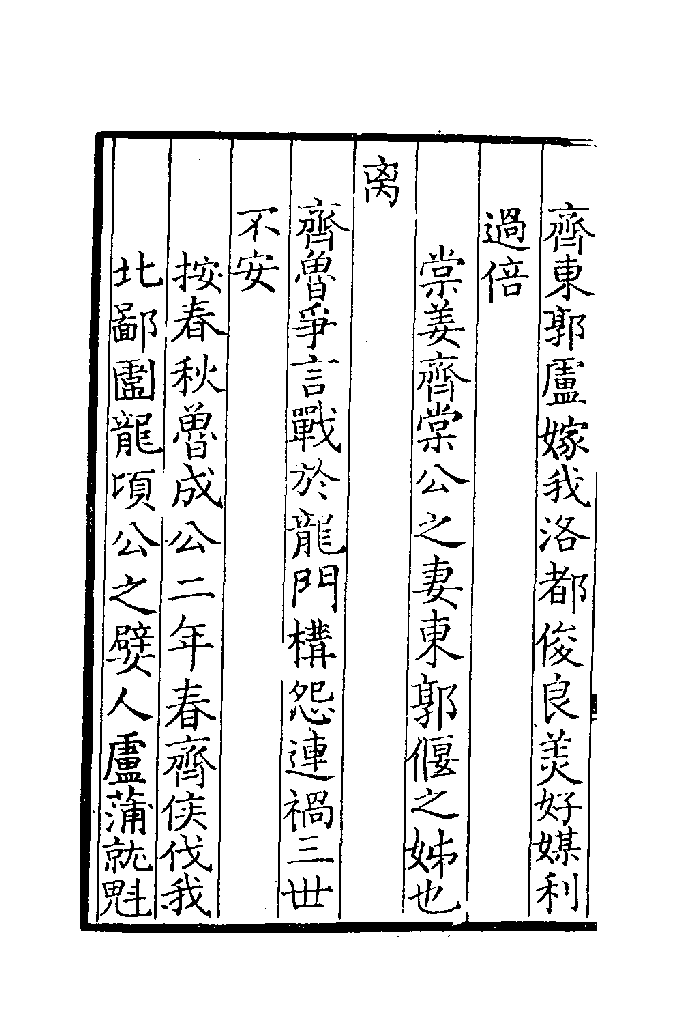 齊東郭盧嫁我洛都俊良羙好媒利
過倍
棠姜齊棠公之妻東郭偃之姊也
离
齊魯爭言戰於龍門構怨連禍三丗
不安
按春秋魯成公二年春齊侯伐我
北鄙圍龍頃公之嬖人盧蒲就魁